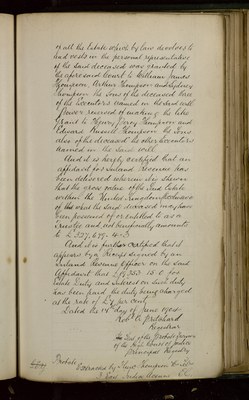 of all the Estate which by law devolves to
and vests in the personal representative
of the said deceased was granted by
the aforesaid Court to William James
Thompson Arthur Thompson and Sydney
Thompson the Sons of the deceased three
of the Executors named in the said Will
Power reserved of making the like
Grant to Henry Percy Thompson and
Edward Russell Thompson the Sons
also of the deceased the other Executors
named in the said Will
And it is hereby certified that an
affidavit for Inland Revenue has
been delivered wherein it is shewn
that the gross value of the said Estate
within the United Kingdom (exclusive
of what the said deceased may have
been possessed of or entitled to as a
trustee and not beneficially) amounts
to
And it is further certified that it
appears by a Receipt signed by an
Inland Revenue Officer on the said
Affidavit that
Estate Duty and interest on such duty
has been paid the duty being charged
at the rate of per cent
Dated the day of June 1904
Pritchard
Registrar
The Seal of the Probate
of the High Court of Justice
Principal Registry
Probate
Extracted by